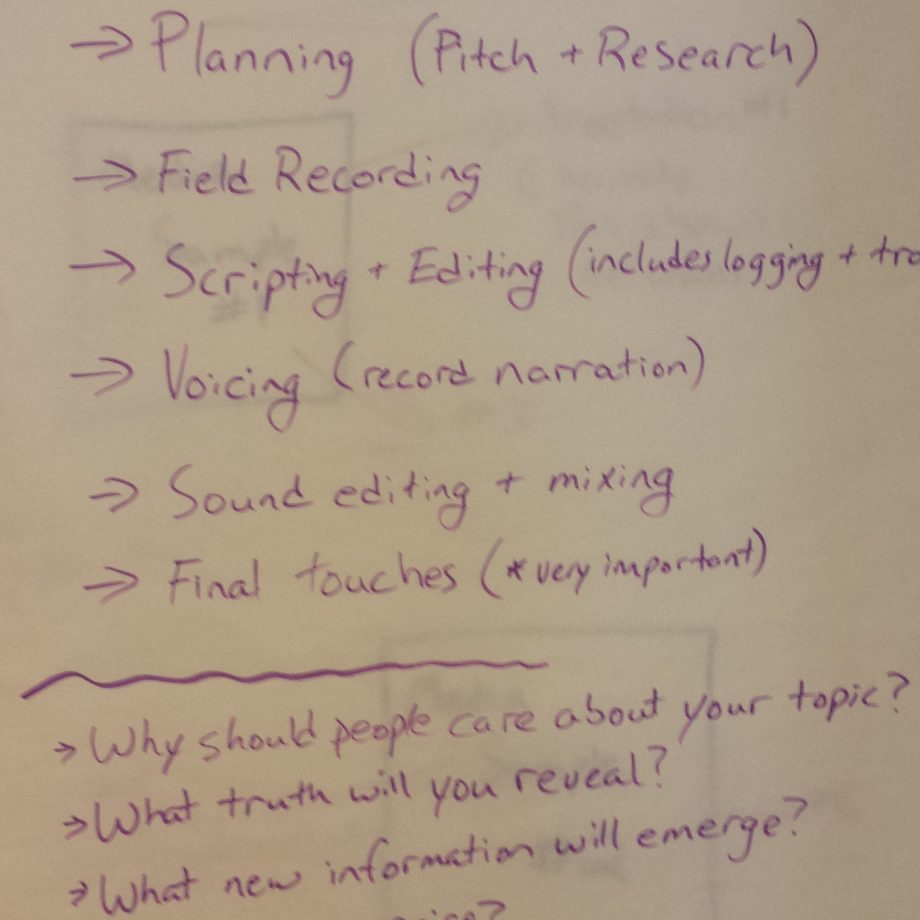 → Planning (Pitch + Research)
→ Field Recording
→ Scripting + Editing (includes logging + tra
→ Voicing (record narration)
→ Sound editing + mixing
→ Final touches (* very important)
→ Why should people care about your topic?
→ What truth will you reveal?
→ What new information will emerge?